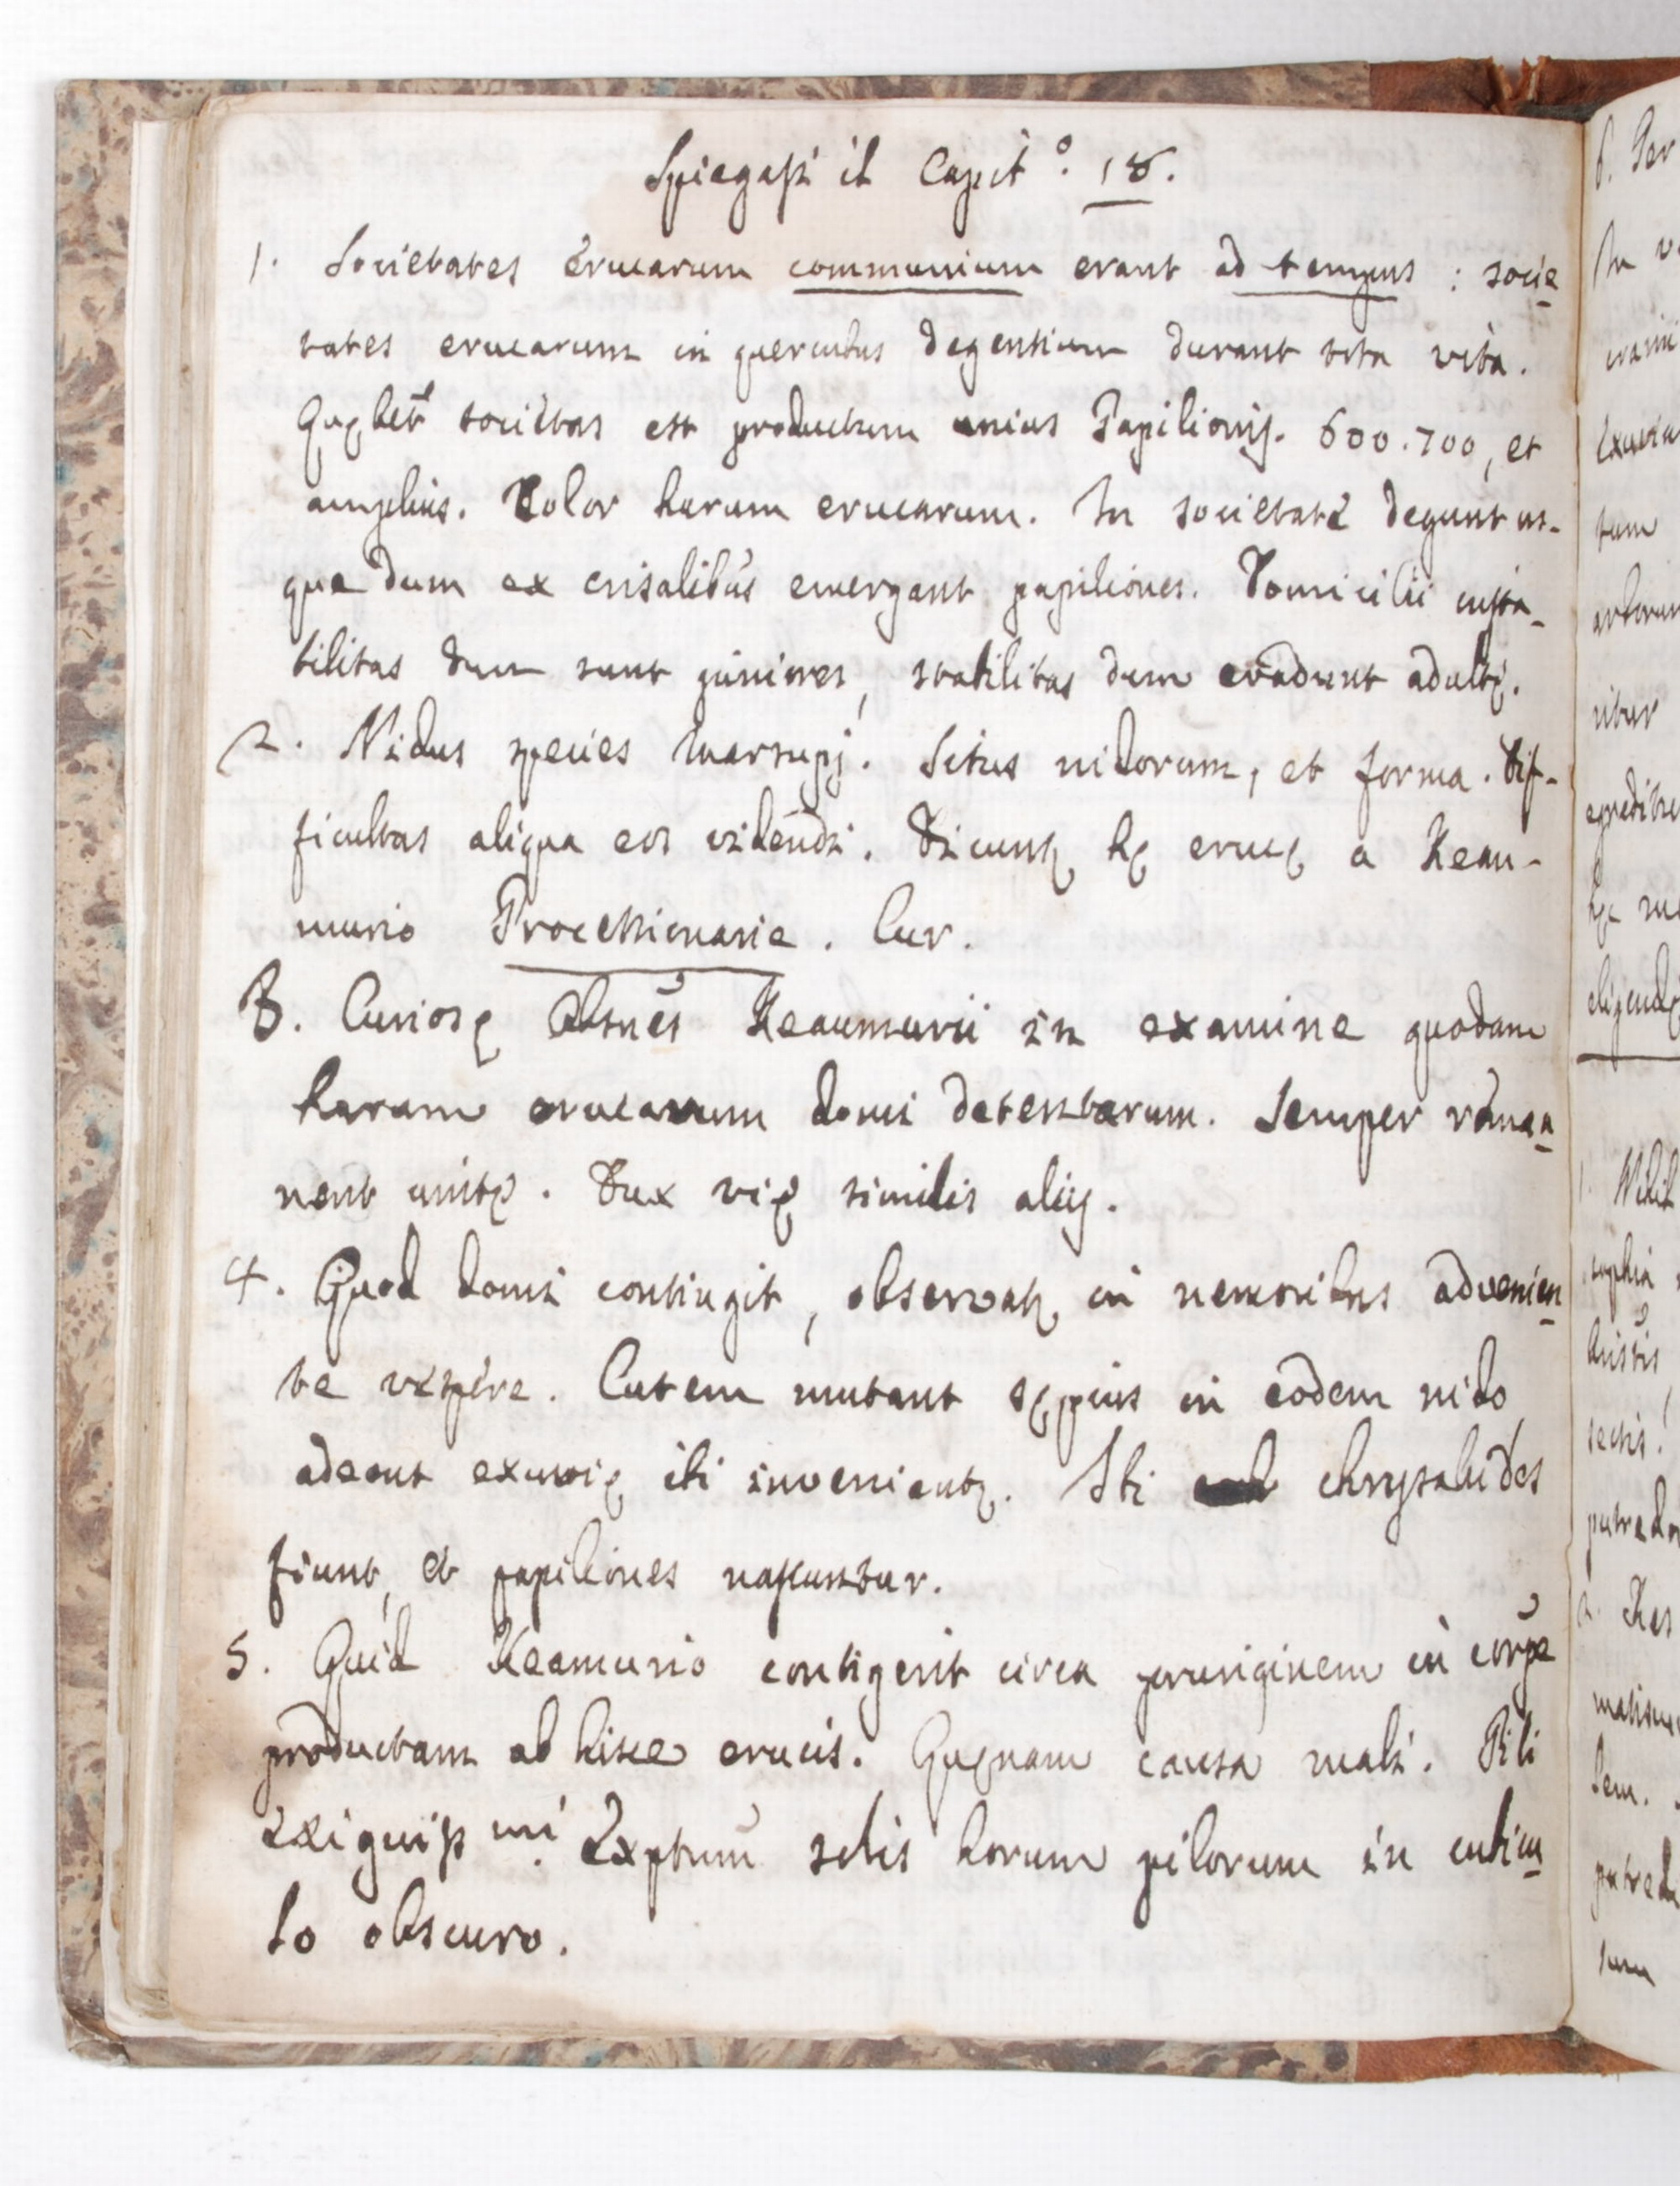 Spiegasi il Capit.º 18.
1. Societates erucarum communium erant ad tempus : socie-
tates erucarum in quercubus degentium durant tota vita.
Quęlibet societas est productum unius Papilionis. 600. 700, et
amplius. Color harum erucarum. In societate degunt us-
que dum ex crisalibus emergant papiliones. Domicilii insta-
bilitas dum sunt juniores, stabilitas dum evadunt adultę.
2. Nidus species marsupj. Situs nidorum, et forma. Dif-
ficultas aliqua eos videndi. Dicunt hę erucę a Reau-
murio Processionarie. Cur.
3. Curiosę Obsnes Reaumurii in examine quodam
harum erucarum domi detentarum. Semper rema-
nent unitę. Dux vię similis aliis.
4. Quod domi contingit, observat in nemoribus advenien-
te vespere. Cutem mutant sępius in eodem nido,
adeout exuvię ibi inveniant. Ibi chrysalides
fiunt, et papiliones nascuntur.
5. Quid Reamurio contigerit circa pruriginem in corpe
productam ab hisce erucis. Quęnam causa mali. Pili
exiguissmi. Exptum solis horum pilorum in cubicu-
lo obscuro.
6. Per